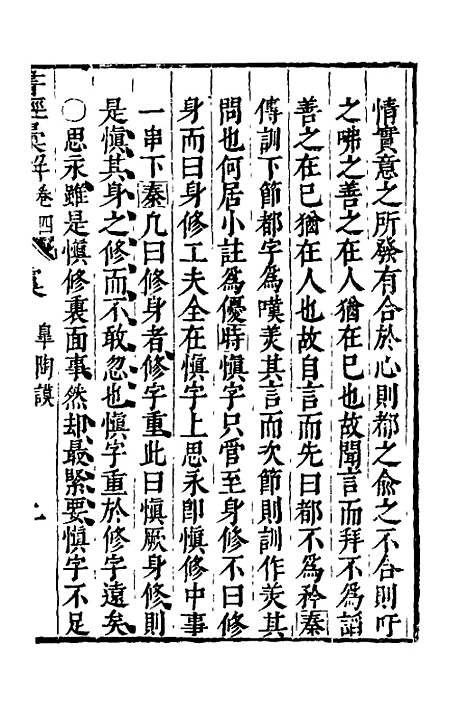 情實意之所發有合於心則都之兪之不合則吁
之咈之善之在人猶在己也故聞言而拜不為謟
善之在己猶在人也故自言而先曰都不為矜秦
傳訓下節都字為嘆美其言而次節則訓作美其
問也何居小註為優時愼字只管至身修不曰修
身而曰身修工夫全在愼字上思永卽愼修中事
一串下秦凢曰修身者修字重此曰愼厥身修則
是愼其身之修而不敢忽也愼字重於修字遠矣
〇思永雖是愼修裏面事然却最緊要愼字不足
書經彚解卷四 皐陶謨